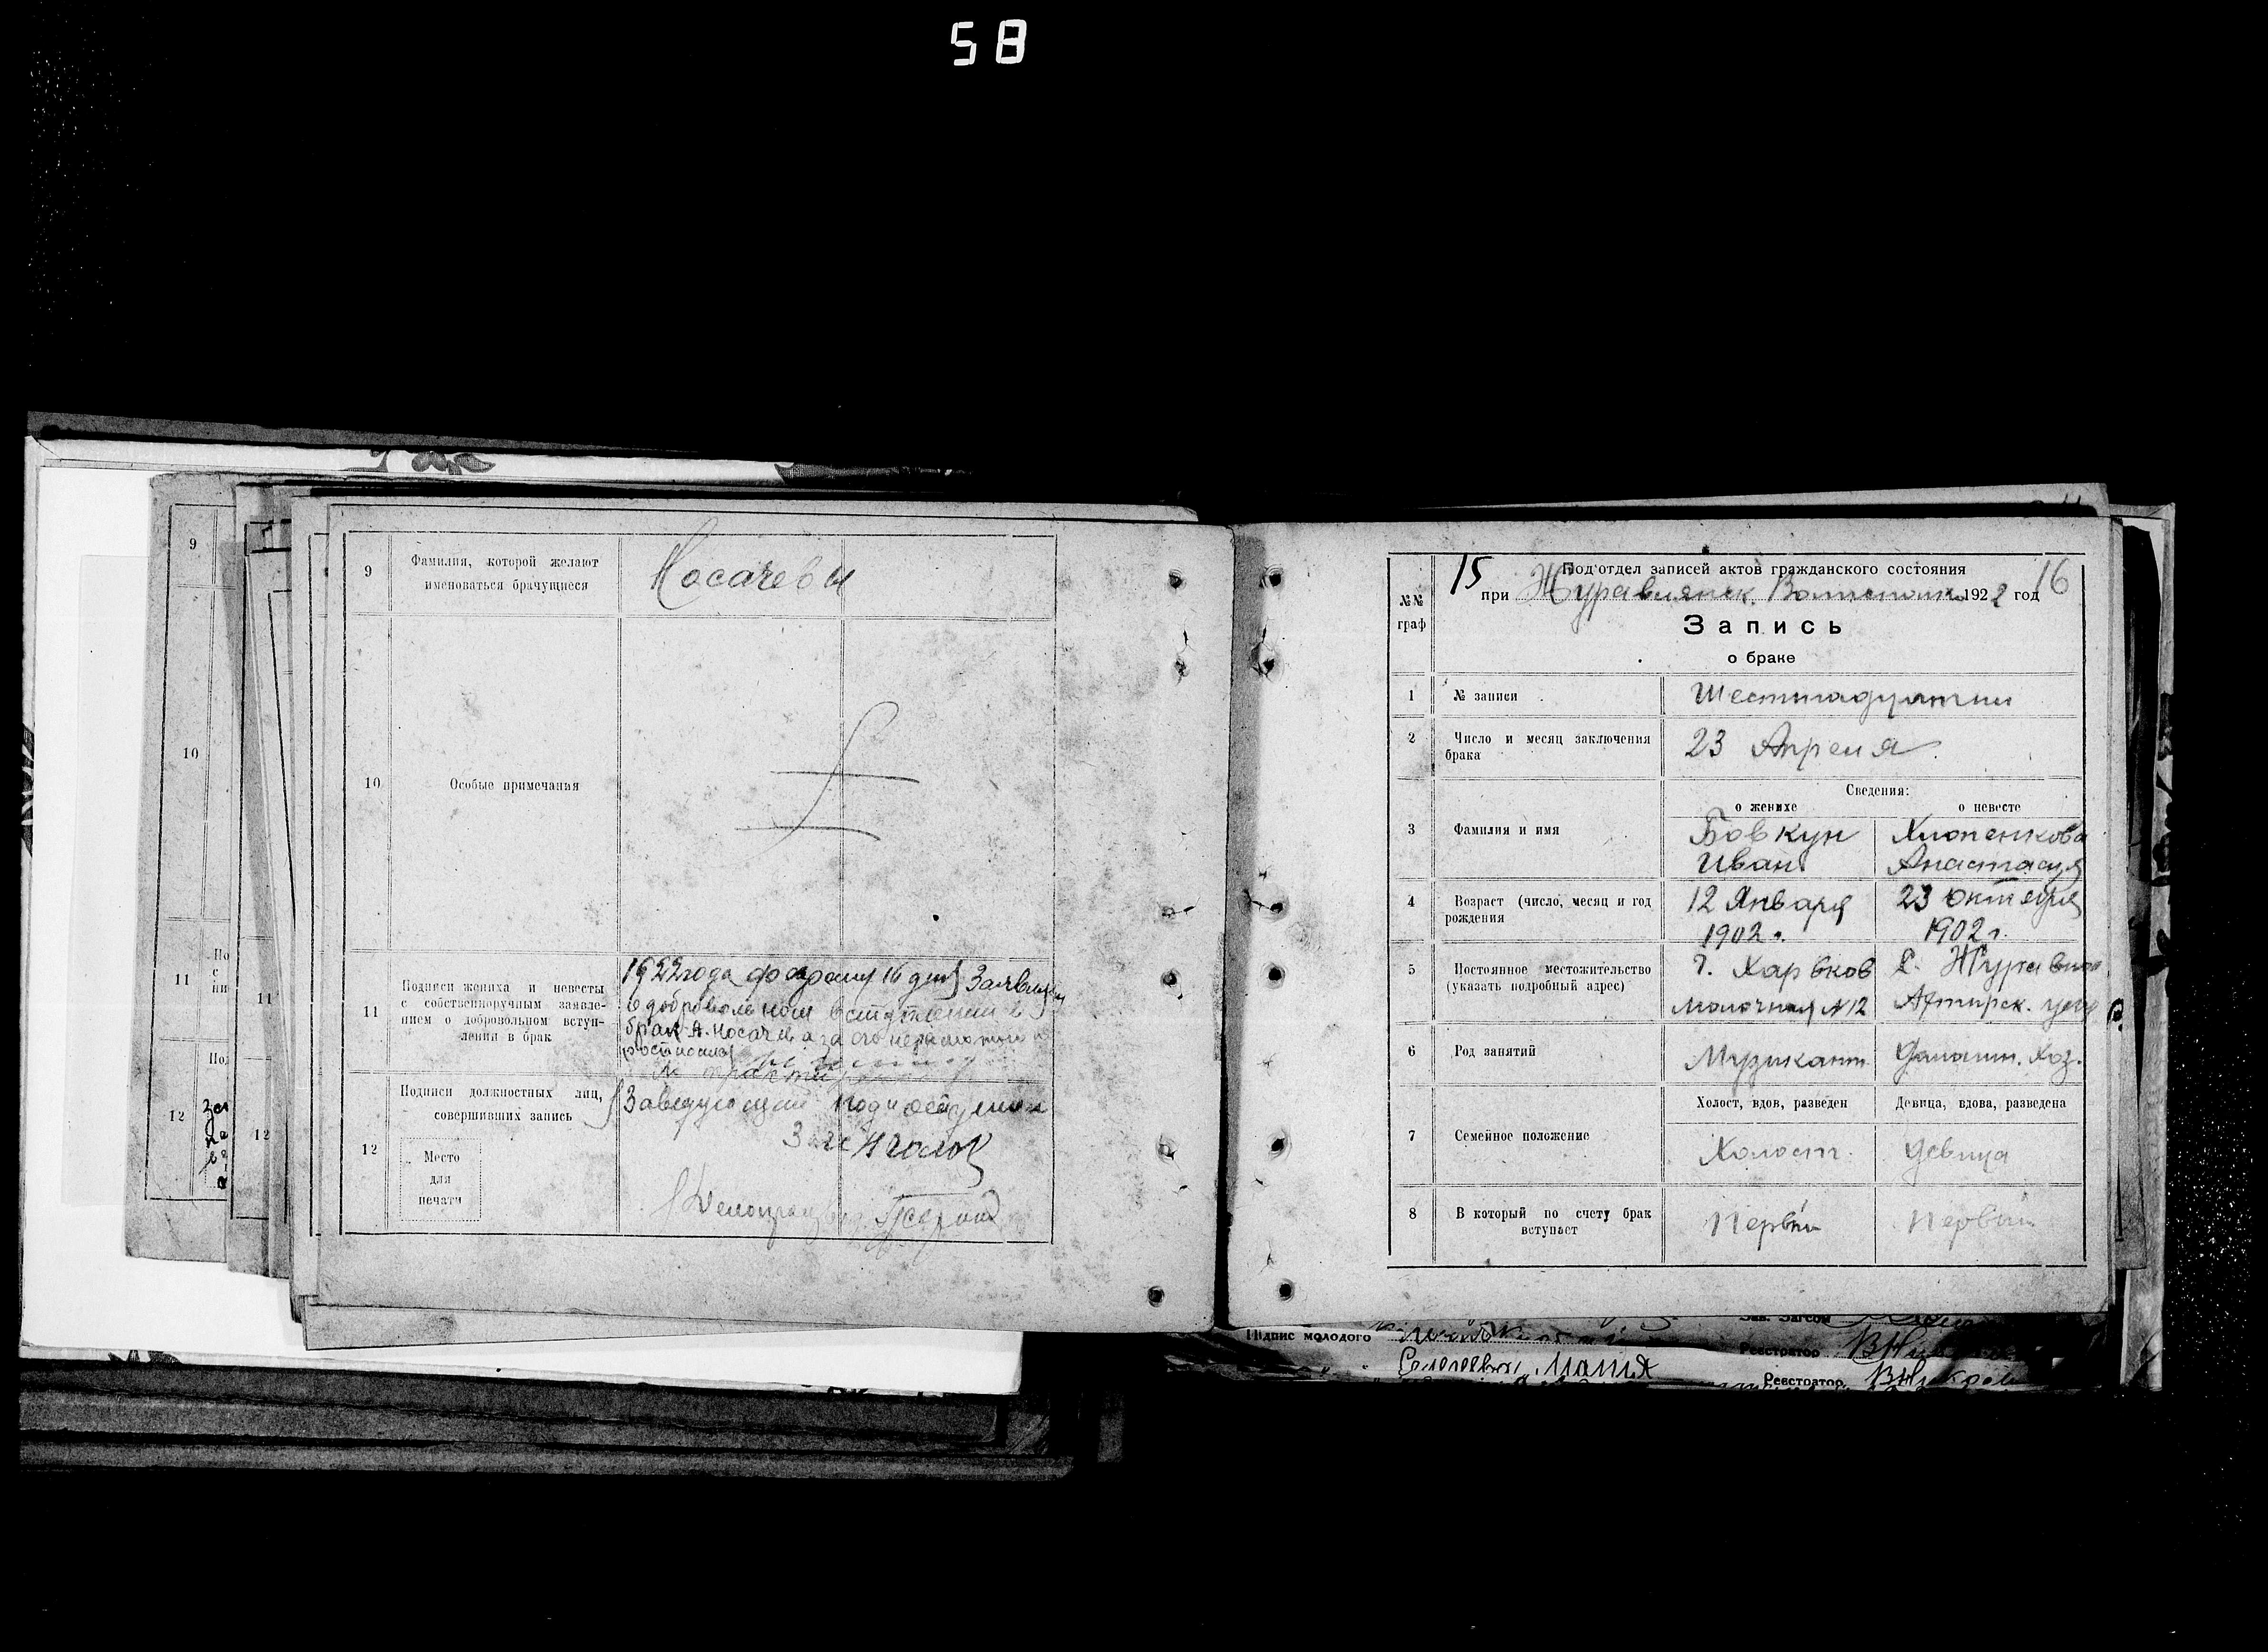 58
9
10
11
12
9
Фамилия, которой желают
именоваться брачущиеся
Носачевы
10
Особые примечания
11
Подписи жениха и невесты
с собственноручным заявле-
нием о добровольном вступ-
лении в брак
1922 года февраля 16 дня Заявляем
о добровольном вступлении в
брак А. Носачев а за его неграмотного
росписался
12
Подписи должностных лиц,
совершивших запись
Заведующий подотделом
Место
для
печати
Делопроизв.
15
Под'отдел записей актов гражданского состояния
16
при Журавлянск. Волисполк. 1922 год
№№
граф
Запись
о браке
1
№ записи
Шестнадцатый
2
Число и месяц заключения
брака
23 Апреля
Сведения:
о женихе
о невесте
3
Фамилия и имя
Бовкун
Иван
Хлопенкова
Анастасия
4
Возраст (число, месяц и год
рождения
12 Января
1902 г.
23 октября
1902 г.
5
Постоянное местожительство
(указать подробный адрес)
г. Харьков
Молочная №12
С. Журавное
Ахтирск. уезд
6
Род занятий
Музикант
Домашн. Хоз.
7
Семейное положение
Холост, вдов, разведен
Девица, вдова, разведена
Холост.
девица
8
В который по счету брак
вступает
Первый
Первый
Підпис молодого
Зав. Загсом
Реєстратор
Марія
Реєстратор